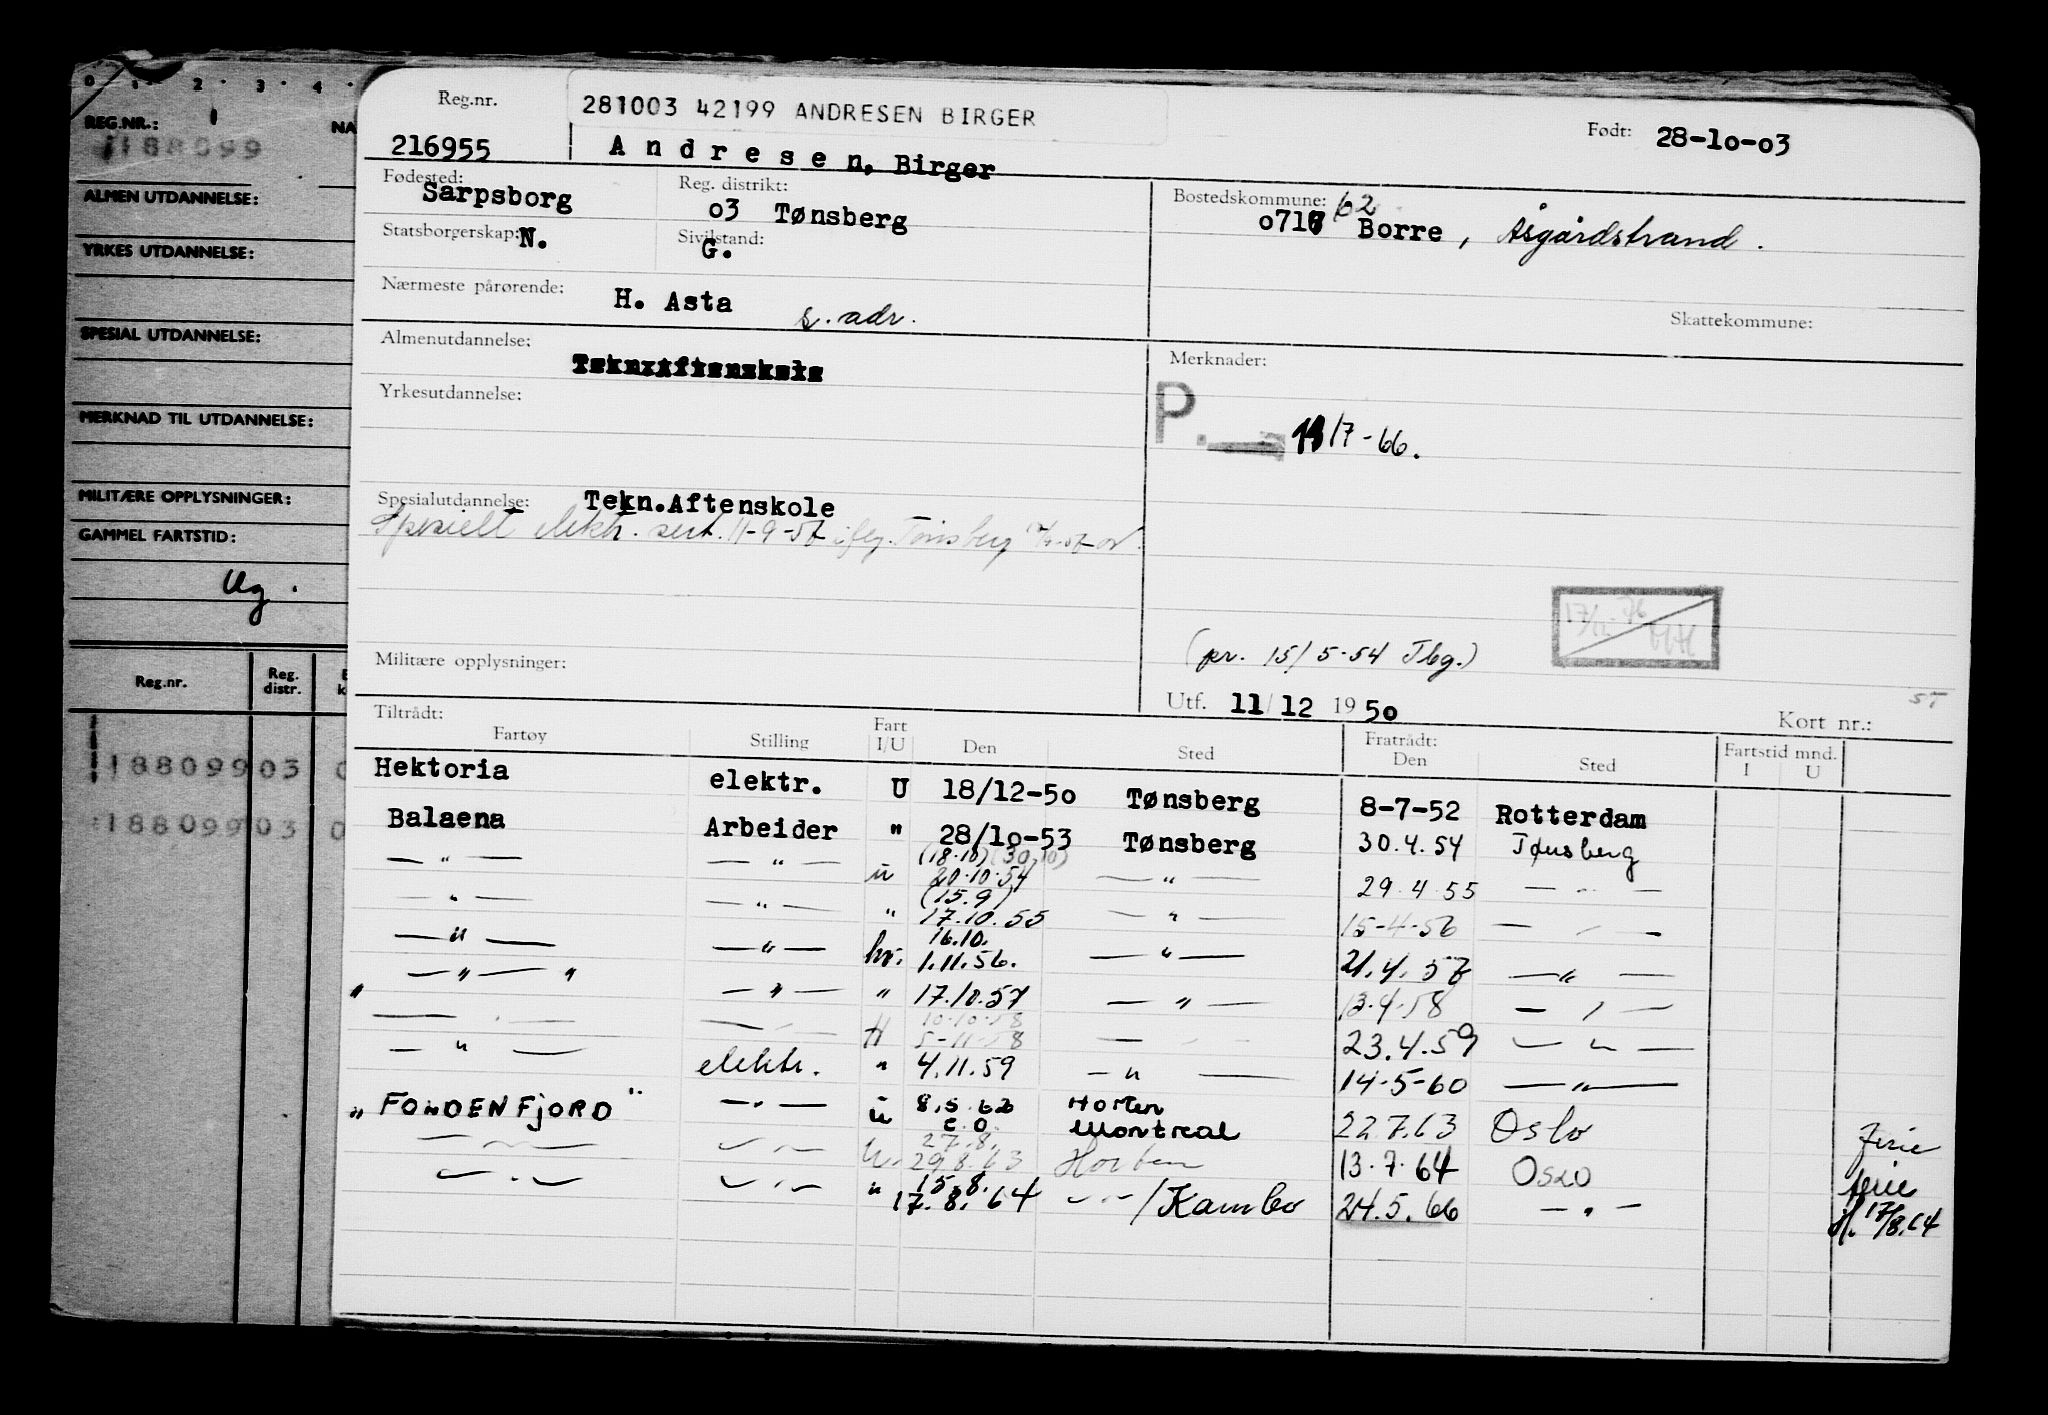 0 1 2 3 4
REG.NR.: NA
188099
ALMEN UTDANNELSE:
YRKES UTDANNELSE:
SPESIAL UTDANNELSE:
MERKNAD TIL UTDANNELSE:
MILITÆRE OPPLYSNINGER:
GAMMEL FARTSTID:
Ug.
Reg.nr. Reg. distr.
188099 03 0
188099 03 0
Reg.nr. 281003 42199 ANDRESEN BIRGER Født: 28-10-03
216955 Andresen, Birger
Fødested: Sarpsborg Reg. distrikt: 03 Tønsberg Bostedskommune: 62 Borre, Åsgårdstrand.
Statsborgerskap: N. Sivilstand: G.
Nærmeste pårørende: H. Asta s. adr.
Skattekommune:
Almenutdannelse: Tekn.Aftenskole Merknader:
Yrkesutdannelse:
P. /7-66.
Spesialutdannelse: Tekn.Aftenskole
Spesielt elektr. sert. 11-9-57 iflg. Tønsberg
17/12-76
(pr. 15/5-54 Tbg.)
Militære opplysninger:
Utf. 11/12 1950
ST
Kort nr.:
Tiltrådt: Fratrådt: Fartstid mnd.
Fartøy Stilling Fart I/U Den Sted Den Sted I U
Hektoria elektr. U 18/12-50 Tønsberg 8-7-52 Rotterdam
Balaena Arbeider " 28/10-53 Tønsberg 30.4.54 Tønsberg
(18.10) (30.10)
— " — — " — u 20.10.54 — " — 29.4.55 — " —
(15.9)
— " — — " — " 17.10.55 — " — 15-4-56 — " —
16.10.
— " — — " — hv. 1.11.56. — " — 21.4.57 — " —
" — " — " — " — " 17.10.57 — " — 13.4.58 — " —
10.10.58
— " — — " — H 5-11-58 — " — 23.4.59 — " —
— " — elektr. " 4.11.59 — " — 14-5-60 — " —
"FONDENFJORD" — " — u 8.5.62 Horten 22.7.63 Oslo Ferie
Montreal
27.8.
— " — — " — U. 29.8.63 Horten 13.7.64 OSLO ferie
15.8.
— " — — " — " 17.8.64 — " — /Kambo 24.5.66 — " — 17/8.64